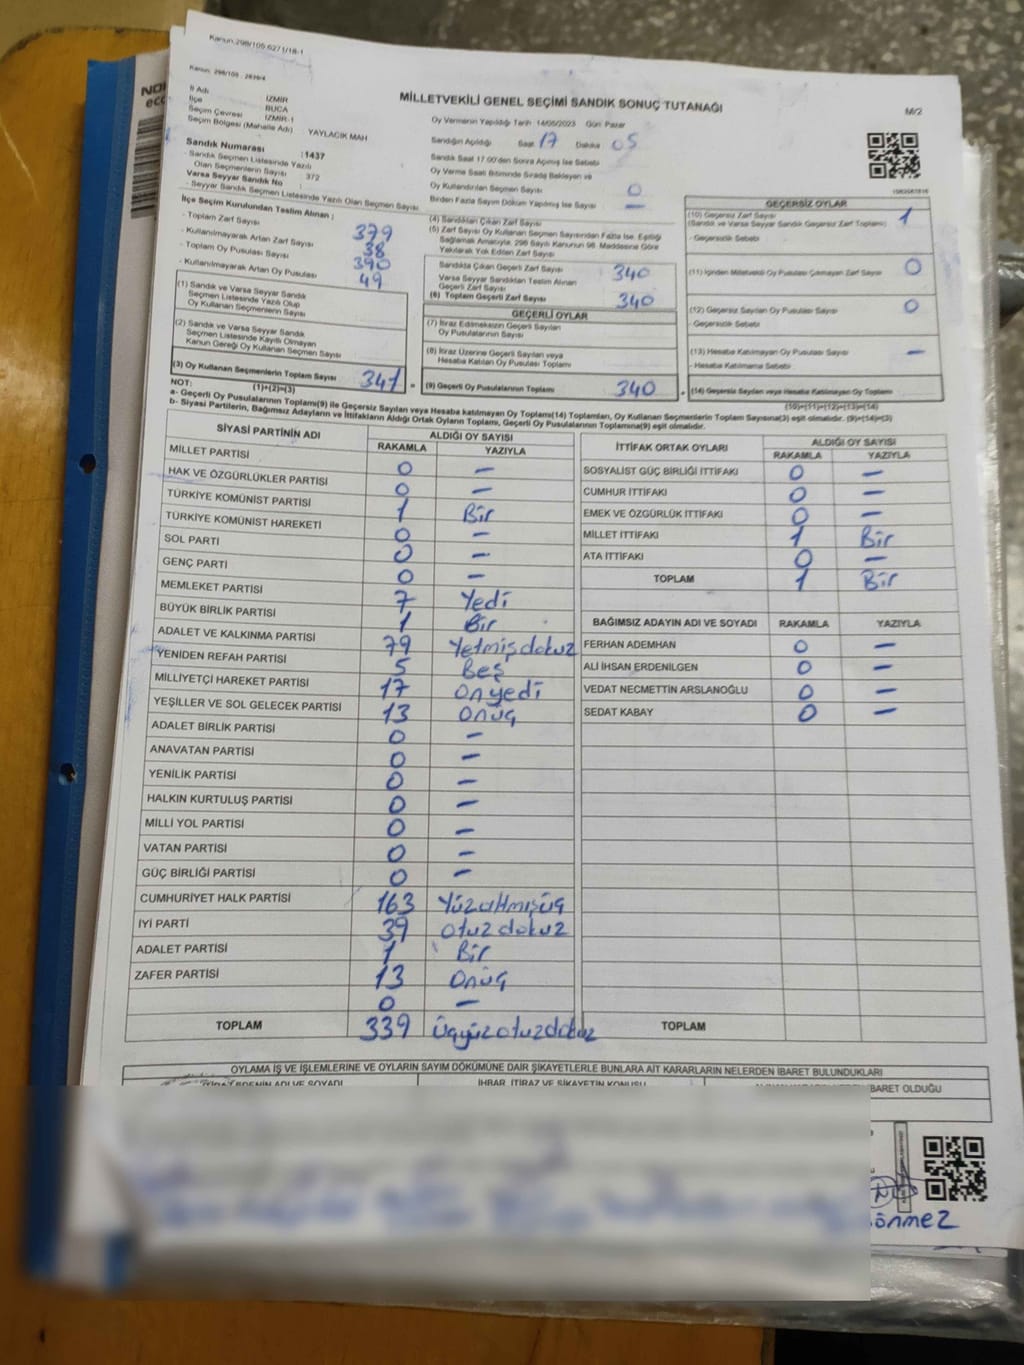 Kanun: 298/105 6271/18-1
Kanun: 298/105 - 2839/4
MİLLETVEKİLİ GENEL SEÇİMİ SANDIK SONUÇ TUTANAĞI
M/2
İl Adı : İZMİR
İlçe : BUCA
Seçim Çevresi : İZMİR-1
Seçim Bölgesi (Mahalle Adı) : YAYLACIK MAH
Sandık Numarası : 1437
- Sandık Seçmen Listesinde Yazılı
Olan Seçmenlerin Sayısı : 372
Varsa Seyyar Sandık No :
- Seyyar Sandık Seçmen Listesinde Yazılı Olan Seçmen Sayısı
Oy Vermenin Yapıldığı Tarih 14/05/2023 Gün: Pazar
Sandığın Açıldığı Saat 17 Dakika 05
Sandık Saat 17:00'den Sonra Açılmış İse Sebebi
Oy Verme Saati Bitiminde Sırada Bekleyen ve
Oy Kullandırılan Seçmen Sayısı 0
Birden Fazla Sayım Döküm Yapılmış İse Sayısı —
İlçe Seçim Kurulundan Teslim Alınan ;
- Toplam Zarf Sayısı 379
- Kullanılmayarak Artan Zarf Sayısı 38
- Toplam Oy Pusulası Sayısı 390
- Kullanılmayarak Artan Oy Pusulası 49
(1) Sandık ve Varsa Seyyar Sandık
Seçmen Listesinde Yazılı Olup
Oy Kullanan Seçmenlerin Sayısı
(2) Sandık ve Varsa Seyyar Sandık
Seçmen Listesinde Kayıtlı Olmayan
Kanun Gereği Oy Kullanan Seçmen Sayısı
(3) Oy Kullanan Seçmenlerin Toplam Sayısı 341
(1)+(2)=(3)
(4) Sandıktan Çıkan Zarf Sayısı
(5) Zarf Sayısı Oy Kullanan Seçmen Sayısından Fazla İse, Eşitliği
Sağlamak Amacıyla, 298 Sayılı Kanunun 98. Maddesine Göre
Yakılarak Yok Edilen Zarf Sayısı
Sandıkta Çıkan Geçerli Zarf Sayısı 340
Varsa Seyyar Sandıktan Teslim Alınan
Geçerli Zarf Sayısı
(6) Toplam Geçerli Zarf Sayısı 340
GEÇERLİ OYLAR
(7) İtiraz Edilmeksizin Geçerli Sayılan
Oy Pusulalarının Sayısı
(8) İtiraz Üzerine Geçerli Sayılan veya
Hesaba Katılan Oy Pusulası Toplamı
(9) Geçerli Oy Pusulalarının Toplamı 340
GEÇERSİZ OYLAR
(10) Geçersiz Zarf Sayısı 1
(Sandık ve Varsa Seyyar Sandık Geçersiz Zarf Toplamı)
- Geçersizlik Sebebi
(11) İçinden Milletvekili Oy Pusulası Çıkmayan Zarf Sayısı 0
(12) Geçersiz Sayılan Oy Pusulası Sayısı 0
- Geçersizlik Sebebi
(13) Hesaba Katılmayan Oy Pusulası Sayısı —
- Hesaba Katılmama Sebebi
(14) Geçersiz Sayılan veya Hesaba Katılmayan Oy Toplamı
(10)+(11)+(12)+(13)=(14)
NOT:
a- Geçerli Oy Pusulalarının Toplamı(9) ile Geçersiz Sayılan veya Hesaba katılmayan Oy Toplamı(14) Toplamları, Oy Kullanan Seçmenlerin Toplam Sayısına(3) eşit olmalıdır. (9)+(14)=(3)
b- Siyasi Partilerin, Bağımsız Adayların ve İttifakların Aldığı Ortak Oyların Toplamı, Geçerli Oy Pusulalarının Toplamına(9) eşit olmalıdır.
SİYASİ PARTİNİN ADI ALDIĞI OY SAYISI
RAKAMLA YAZIYLA
MİLLET PARTİSİ 0 —
HAK VE ÖZGÜRLÜKLER PARTİSİ 0 —
TÜRKİYE KOMÜNİST PARTİSİ 1 Bir
TÜRKİYE KOMÜNİST HAREKETİ 0 —
SOL PARTİ 0 —
GENÇ PARTİ 0 —
MEMLEKET PARTİSİ 7 Yedi
BÜYÜK BİRLİK PARTİSİ 1 Bir
ADALET VE KALKINMA PARTİSİ 79 Yetmişdokuz
YENİDEN REFAH PARTİSİ 5 Beş
MİLLİYETÇİ HAREKET PARTİSİ 17 Onyedi
YEŞİLLER VE SOL GELECEK PARTİSİ 13 Onüç
ADALET BİRLİK PARTİSİ 0 —
ANAVATAN PARTİSİ 0 —
YENİLİK PARTİSİ 0 —
HALKIN KURTULUŞ PARTİSİ 0 —
MİLLİ YOL PARTİSİ 0 —
VATAN PARTİSİ 0 —
GÜÇ BİRLİĞİ PARTİSİ 0 —
CUMHURİYET HALK PARTİSİ 163 Yüzaltmışüç
İYİ PARTİ 39 otuzdokuz
ADALET PARTİSİ 1 Bir
ZAFER PARTİSİ 13 Onüç
0 —
TOPLAM 339 üçyüzotuzdokuz
İTTİFAK ORTAK OYLARI ALDIĞI OY SAYISI
RAKAMLA YAZIYLA
SOSYALİST GÜÇ BİRLİĞİ İTTİFAKI 0 —
CUMHUR İTTİFAKI 0 —
EMEK VE ÖZGÜRLÜK İTTİFAKI 0 —
MİLLET İTTİFAKI 1 Bir
ATA İTTİFAKI 0 —
TOPLAM 1 Bir
BAĞIMSIZ ADAYIN ADI VE SOYADI RAKAMLA YAZIYLA
FERHAN ADEMHAN 0 —
ALİ İHSAN ERDENİLGEN 0 —
VEDAT NECMETTİN ARSLANOĞLU 0 —
SEDAT KABAY 0 —
TOPLAM
OYLAMA İŞ VE İŞLEMLERİNE VE OYLARIN SAYIM DÖKÜMÜNE DAİR ŞİKAYETLERLE BUNLARA AİT KARARLARIN NELERDEN İBARET BULUNDUKLARI
ADI VE SOYADI İHBAR, İTİRAZ VE ŞİKAYETİN KONUSU İBARET OLDUĞU